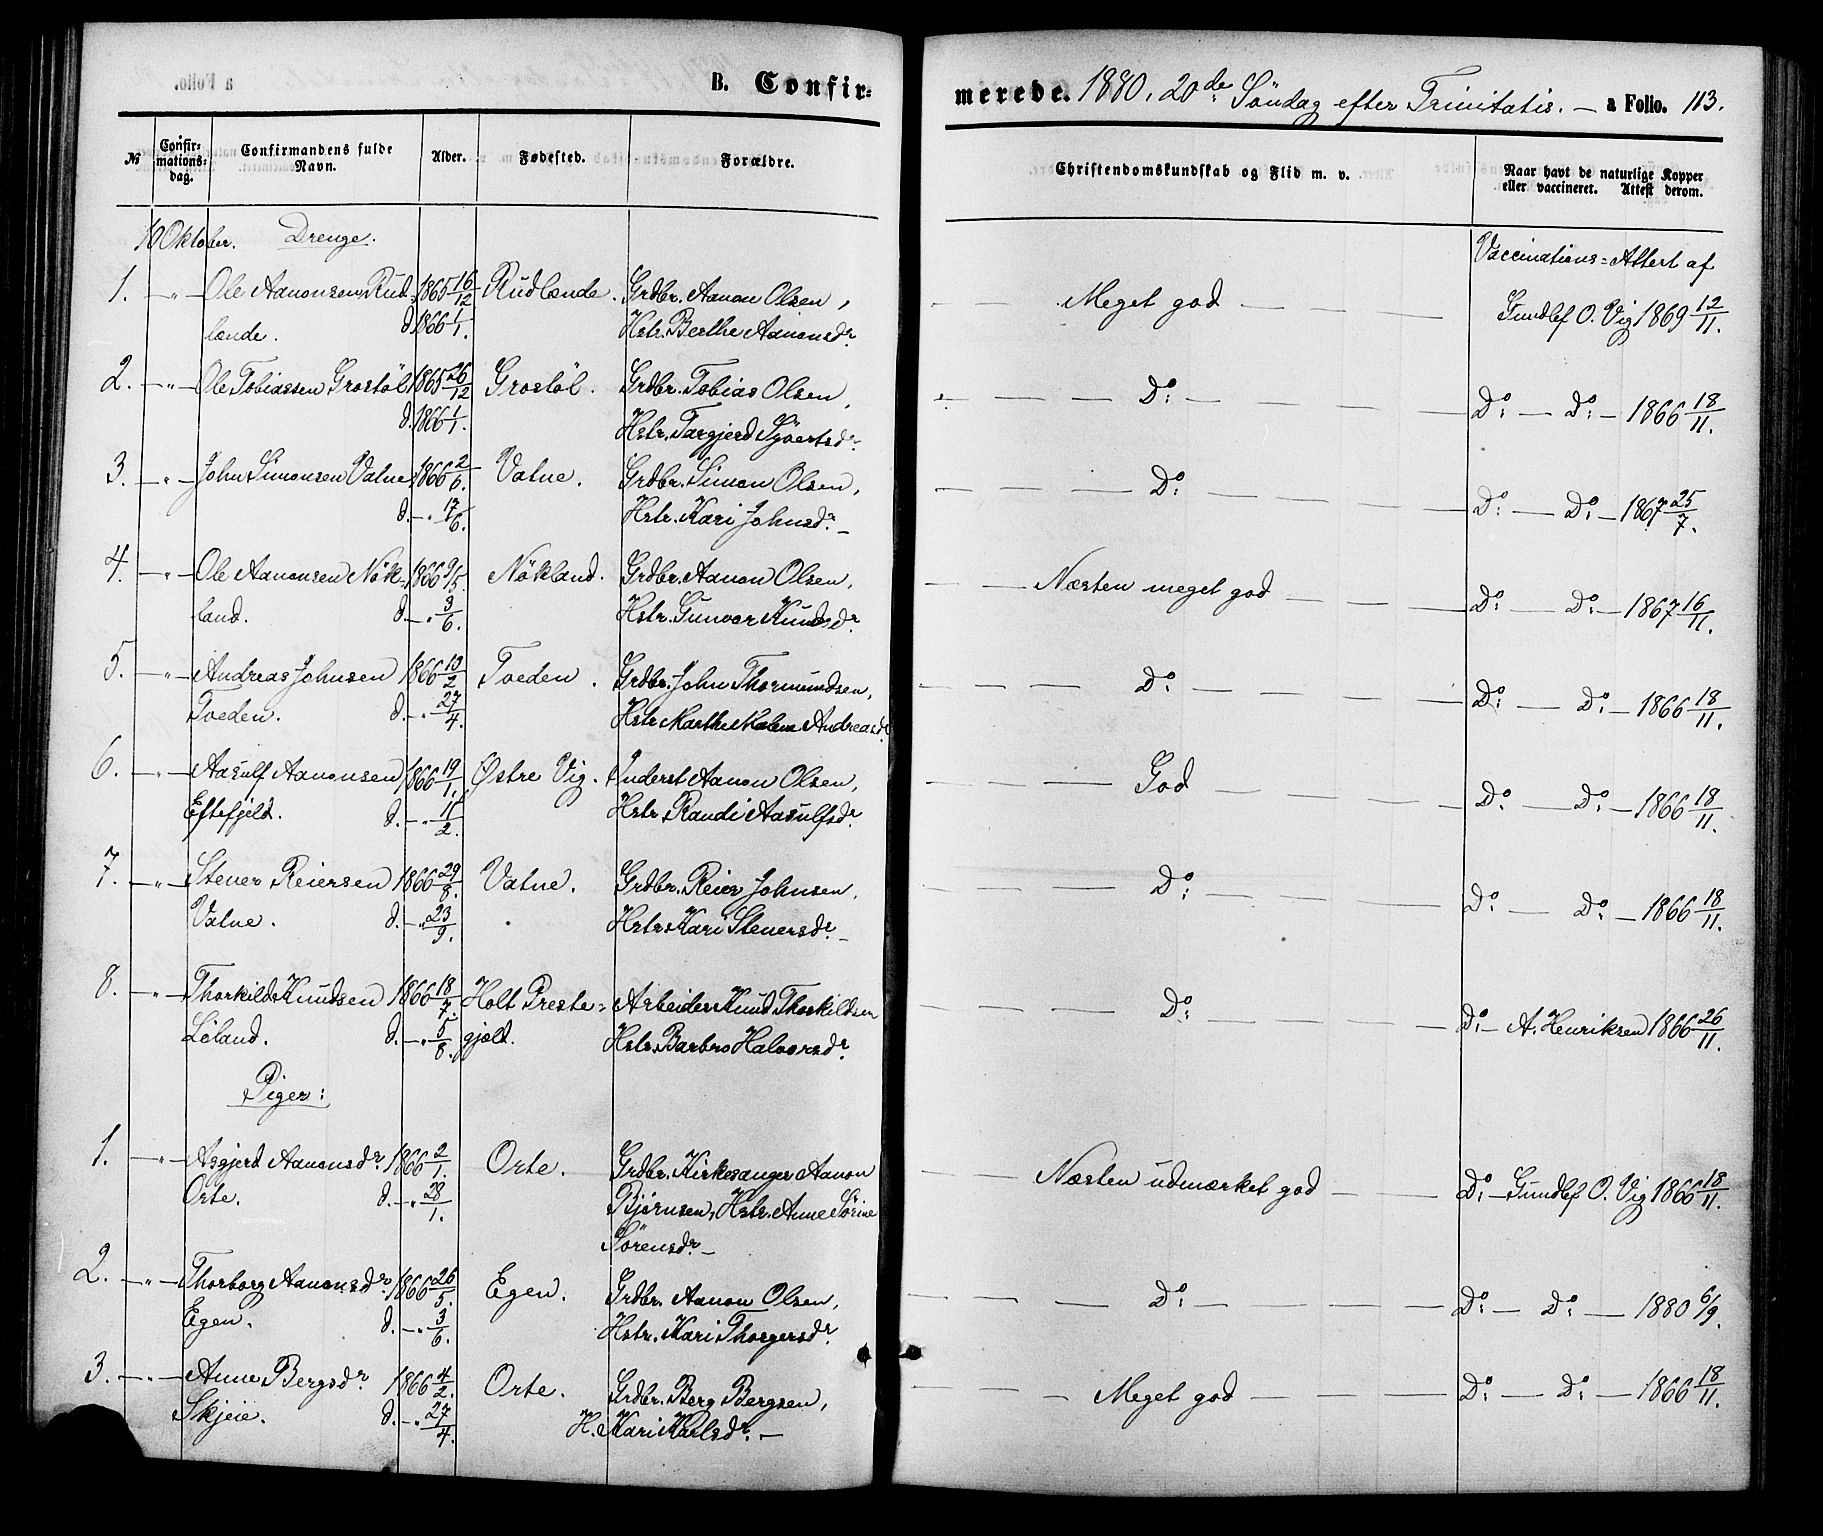 a Folio.
B. Confir=
merede. 1880, 20de Söndag efter Trinitatis. — a Folio. 113.
No Confirmationsdag. Confirmandens fulde Navn. Alder. Fødested. Forældre. Christendomskundskab og Flid m. v. Naar havt de naturlige Kopper eller vaccineret. Attest derom.
10 Oktober. Drenge. Vaccinations=Attest af
1. — " — Ole Aanonsen Rud- 1865 16/12 Rudlende. Grdbr. Aanon Olsen, — — Meget god — — — Gundlef O. Vig 1869 12/11.
lende. d. 1866 1/1. Hstr. Berthe Aanonsdr.
2. — " — Ole Tobiassen Grostöl 1865 26/12 Grostöl. Grdbr. Tobias Olsen, — — — Do: — — — — Do: — Do: — 1866 18/11.
d. 1866 1/1. Hstr. Targjerd Syvertsdr.
3. — " — John Simonsen Vatne 1866 2/6. Vatne. Grdbr. Simon Olsen, — — — Do: — — — — Do: — Do: — 1867 25/7.
d. — " 17/6. Hstr. Kari Johnsdr. —
4. — " — Ole Aanonsen Nök- 1866 9/5. Nökland. Grdbr. Aanon Olsen, — — Næsten meget god — — — Do: — Do: — 1867 16/11.
land. d. — " 3/6. Hstr. Gunvor Knudsdr.
5. — " — Andreas Johnsen 1866 10/2 Tveden. Grdbr. John Thormundsen, — — — Do: — — — — Do: — Do: — 1866 18/11.
Tveden. d. — " 27/4. Hstr. Marthe Malene Andreasdr.
6. — " — Aasulf Aanonsen 1866 19/1. Østre Vig. Inderst Aanon Olsen, — — — God — — — — Do: — Do: — 1866 18/11.
Eftefjeld. d. — " 11/2. Hstr. Randi Aasulfsdr.
7. — " — Stener Reiersen 1866 29/8. Vatne. Grdbr. Reier Johnsen, — — — Do: — — — — Do: — Do: — 1866 18/11.
Vatne. d. — " 23/9. Hstr. Kari Stenersdr. —
8. — " — Thorkild Knudsen 1866 18/7. Holt Preste= Arbeider Knud Thorkildsen — — — Do: — — — — Do: — A. Henriksen 1866 26/11.
Leland. d. — " 5/8. gjeld. Hstr. Barbro Halvorsdr.
Piger:
1. — " — Asgjerd Aanonsdr. 1866 2/1. Orte. Grdbr. Kirkesanger Aanon — — Næsten udmærket god — — Do: — Gundlef O. Vig 1866 18/11.
Orte. d. — " 28/1. Bjørnsen, Hstr. Anne Sörine
Sörensdr. —
2. — " — Thorborg Aanonsdr. 1866 26/5. Egen. Grdbr. Aanon Olsen, — — — Do: — — — — Do: — Do: — 1880 6/9.
Egen. d. — " 3/6. Hstr. Kari Thorgersdr.
3. — " — Anne Bergsdr. 1866 4/2. Orte. Grdbr. Berg Bergsen, — — — Meget god — — — Do: — Do: — 1866 18/11.
Skjeie. d. — " 27/4. H. Kari Karlsdr. —